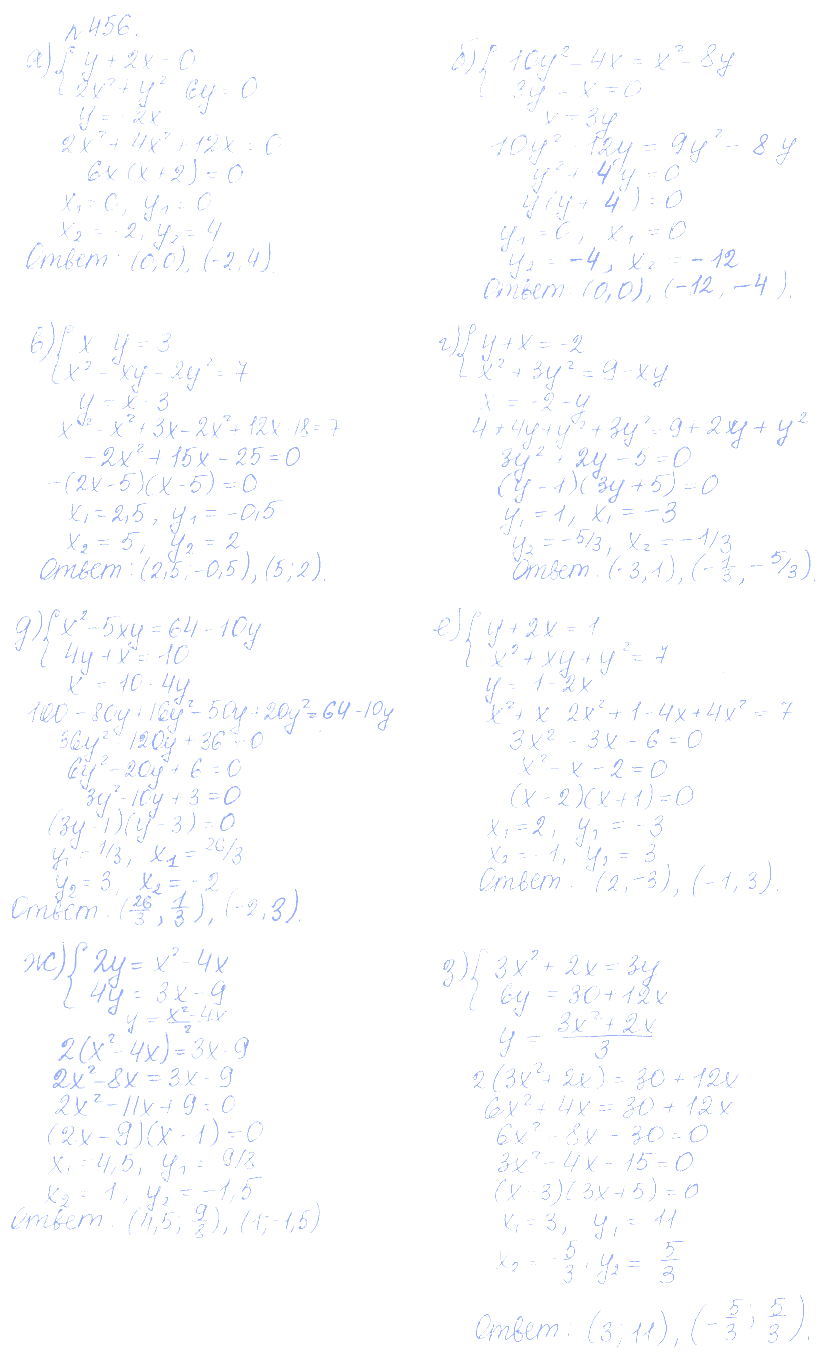 №456.
а) { y + 2x = 0
2x² + y² 6y = 0
y = -2x
2x² + 4x² + 12x = 0
6x(x + 2) = 0
x₁ = 0, y₁ = 0
x₂ = -2, y₂ = 4
Ответ: (0,0), (-2,4).
б) { 10y² - 4x = x² - 8y
3y - x = 0
x = 3y
10y² 12y = 9y² - 8y
y² + 4y = 0
y(y + 4) = 0
y₁ = 0, x₁ = 0
y₂ = -4, x₂ = -12
Ответ (0,0), (-12, -4).
в) { x y = 3
x² - xy - 2y² = 7
y = x - 3
x² - x² + 3x - 2x² + 12x - 18 = 7
-2x² + 15x - 25 = 0
-(2x - 5)(x - 5) = 0
x₁ = 2,5, y₁ = -0,5
x₂ = 5, y₂ = 2
Ответ: (2,5; -0,5), (5; 2).
г) { y + x = -2
x² + 3y² = 9 - xy
x = -2 - y
4 + 4y + y² + 3y² = 9 + 2y + y²
3y² + 2y - 5 = 0
(y - 1)(3y + 5) = 0
y₁ = 1, x₁ = -3
y₂ = -5/3, x₂ = -1/3
Ответ: (-3,1), (-1/3, -5/3).
д) { x² - 5xy = 64 - 10y
4y + x = -10
x = 10 - 4y
100 - 80y + 16y² - 50y + 20y² = 64 - 10y
36y² - 120y + 36 = 0
6y² - 20y + 6 = 0
3y² - 10y + 3 = 0
(3y - 1)(y - 3) = 0
y₁ = 1/3, x₁ = 26/3
y₂ = 3, x₂ = -2
Ответ: (26/3, 1/3), (-2, 3).
е) { y + 2x = 1
x² + xy + y² = 7
y = 1 - 2x
x² + x 2x² + 1 - 4x + 4x² = 7
3x² - 3x - 6 = 0
x² - x - 2 = 0
(x - 2)(x + 1) = 0
x₁ = 2, y₁ = -3
x₂ = -1, y₂ = 3
Ответ: (2, -3), (-1, 3).
ж) { 2y = x² - 4x
4y = 3x - 9
y = x² - 4x / 2
2(x² - 4x) = 3x - 9
2x² - 8x = 3x - 9
2x² - 11x + 9 = 0
(2x - 9)(x - 1) = 0
x₁ = 4,5, y₁ = 9/8
x₂ = 1, y₂ = -1,5
Ответ: (4,5; 9/8), (1; -1,5)
з) { 3x² + 2x = 3y
6y = 30 + 12x
y = 3x² + 2x / 3
2(3x² + 2x) = 30 + 12x
6x² + 4x = 30 + 12x
6x² - 8x - 30 = 0
3x² - 4x - 15 = 0
(x - 3)(3x + 5) = 0
x₁ = 3, y₁ = 11
x₂ = -5/3, y₂ = 5/3
Ответ: (3; 11), (-5/3; 5/3).